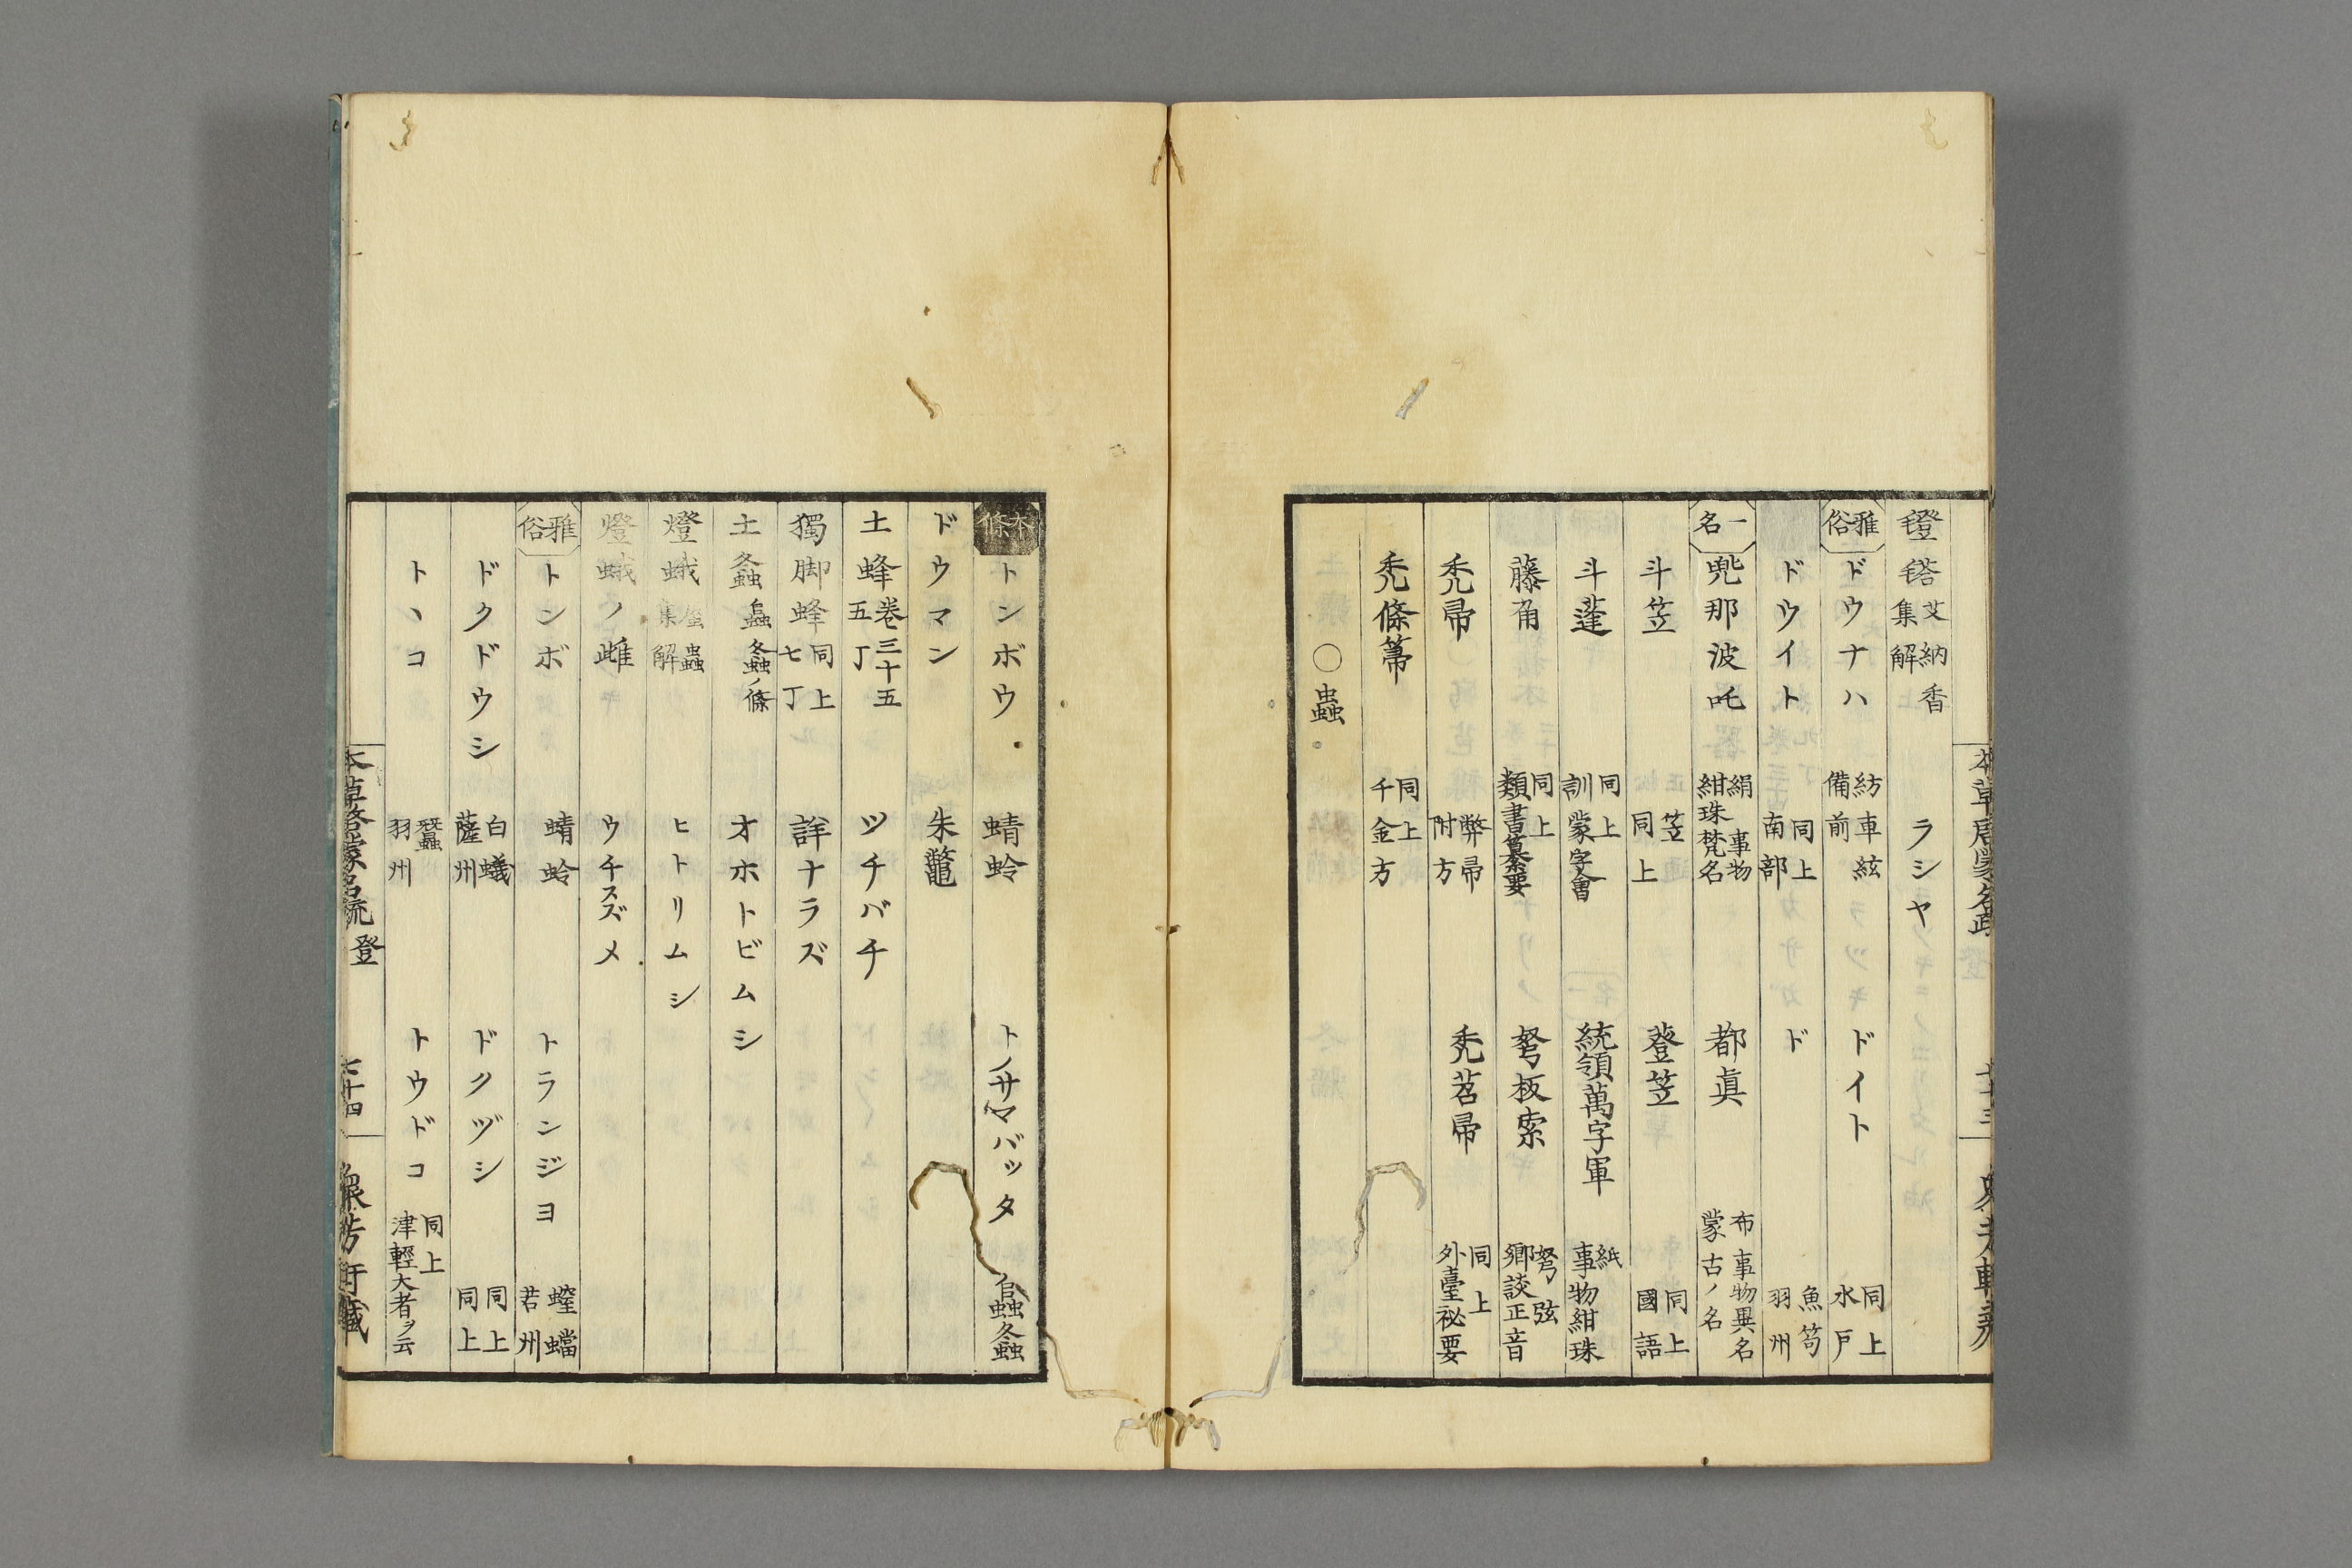 毾㲪 艾納香集解 ラシヤ
雅俗 ドウナハ 紡車絃備前 ドイト 同上水戸
ドウイト 同上南部 ド 魚笱羽州
一名 兜那波吒 絹事物紺珠梵名 都眞 布事物異名蒙古ノ名
斗笠 笠同上 簦笠 同上國語
斗蓬 同上訓蒙字會 統領萬字軍 紙事物紺珠
藤角 同上類書纂要 弩板索 弩弦鄉談正音
禿帚 弊帚附方 禿苕帚 同上外臺祕要
禿條箒 同上千金方
○蟲
本條 トンボウ 蜻蛉 トノサマバッタ 𧕅螽
ドウマン 朱鼈
土蜂 卷三十五五丁 ツチバチ
獨脚蜂 同上七丁 詳ナラズ
土螽 𧕅螽ノ條 オホトビムシ
燈蛾 蠱蟲集解 ヒトリムシ
燈蛾ノ雌 ウチスズメ
雅俗 トンボ 蜻蛉 トランジヨ 螳蟷若州
ドクドウシ 白蟻薩州 ドクヅシ 同上同上
トヽコ 蠶羽州 トウドコ 同上津輕大者ヲ云
本草啓蒙名疏 登 七十四 衆芳軒藏